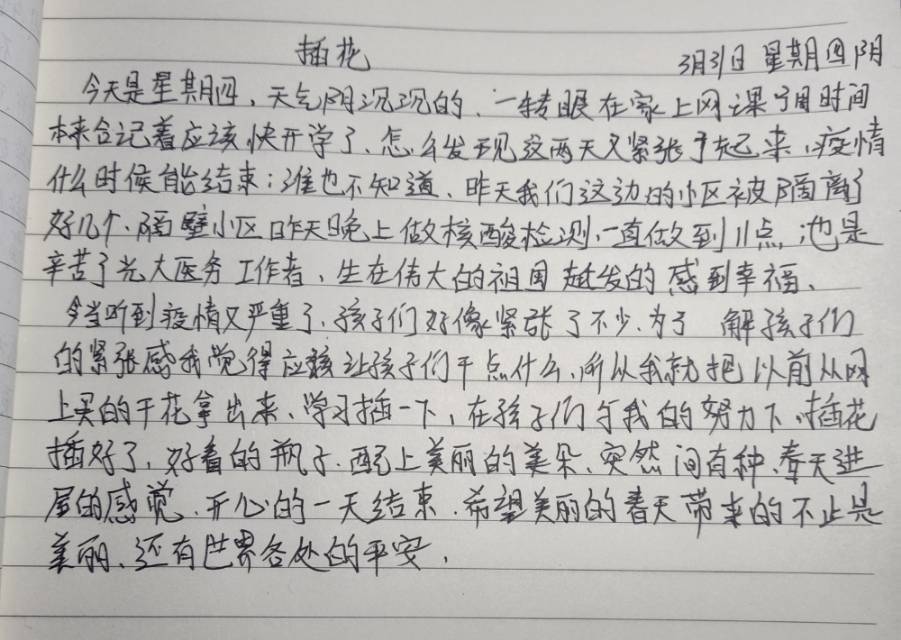 插花 3月31日 星期四 阴
今天是星期四、天气阴沉沉的、一转眼在家上网课 用时间
本来合记着应该快开学了、怎么发现这两天又紧张了起来、疫情
什么时候能结束；谁也不知道、昨天我们这边的小区被隔离了
好几个、隔壁小区昨天晚上做核酸检测、一直做到11点，也是
辛苦了 大医务工作者、生在伟大的祖国越发的感到幸福、
今当听到疫情又严重了、孩子们好像紧张了不少、为了 解孩子们
的紧张感我觉得应该让孩子们干点什么、所以我就把以前从网
上买的干花拿出来、学习插一下，在孩子们与我的努力下、插花
插好了，好看的瓶子、配上美丽的美朵、突然间有种春天进
屋的感觉、开心的一天结束、希望美丽的春天带来的不止是
美丽、还有世界各处的平安，